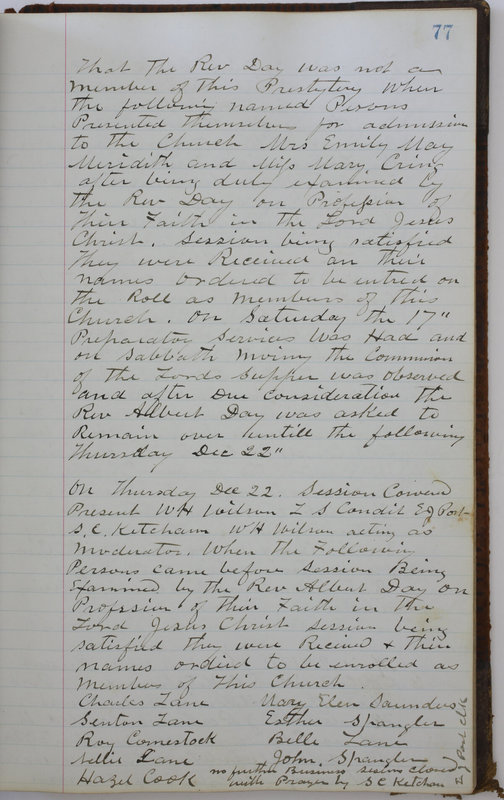 77
that the Rev Day was not a
member of this Presbytery when
the following named Persons
Presented themselves for admission
to the Church Mrs Emily May
Meridith and Miss Mary Crim
after being duly examined by
the Rev Day on Profession of
their Faith in the Lord Jesus
Christ. Session being satisfied
they were Received an their
names ordered to be entred on
the Roll as members of this
Church. On Saturday the 17"
Preparatory Services was Had and
on Sabbath Mornng the Communion
of the Lords Supper was observed
and after Due Consideration the
Rev Albert Day was asked to
Remain over untill the following
Thursday Dec 22"
On Thursday Dec 22. Session Convened
Present W H Wilson L S Condit E J Post
S. C. Ketcham W H Wilson acting as
Moderator. When the Following
Persons came before Session Being
Examined by the Rev Albert Day on
Profession of their Faith in the
Lord Jesus Christ Session being
satisfied they were Recived & their
names ordied to be enrolled as
Members of This Church.
Charles Lane Mary Elen Saunders
Genton Lane Esther Spangler
Roy Comestock Belle Lane
Nellie Lane John Spangler
Hazel Cook no further Business sesion closed
with Prayer by S C Ketcham
E J Post Clk